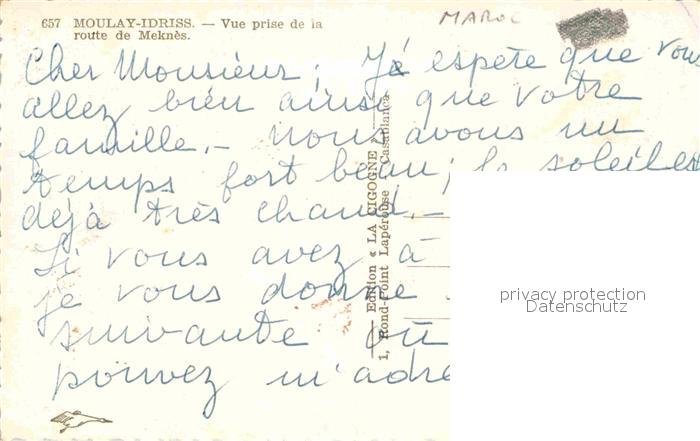 657 MOULAY-IDRISS. — Vue prise de la
route de Meknès.
MAROC
Cher Monsieur, J'espère que vous
allez bien ainsi que votre
famille. – Nous avons un
temps fort beau ; le soleil est
déjà très chaud. –
Si vous avez à
je vous donne
suivante où
pouvez m'adre
— Edition « LA CIGOGNE » —
1, Rond-Point Lapérouse - Casablanca
privacy protection
Datenschutz